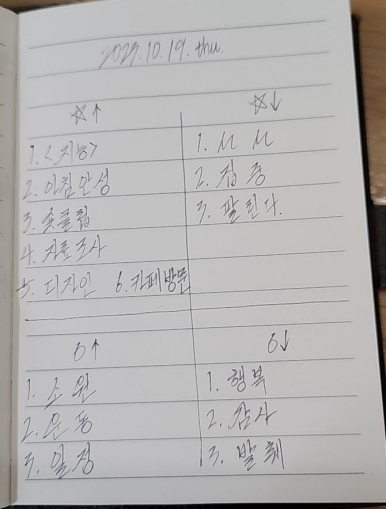 2023.10.19.thu.
☆↑
1. <지능>
2. 아침완성
3. 숏클립
4. 자료조사
5. 디자인 6. 카페방문
☆↓
1. 
2. 집중
3. 팔린다.
↑
1. 소원
2. 운동
3. 일정
↓
1. 행복
2. 감사
3. 발췌